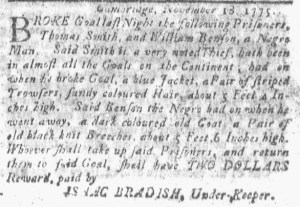 Cambridge, November 18, 1775.
BROKE Goal last Night the following Prisoners,
Thomas Smith, and William Benson, a Negro
Man. Said Smith is a very noted Thief, hath been
in almost all the Goals on the Continent; had on
when he broke Goal, a blue Jacket, a Pair of striped
Trowsers, sandy coloured Hair, about 5 Feet 4 In-
ches high. Said Benson the Negro had on when he
went away, a dark coloured old Coat, a Pair of
old black knit Breeches, about 5 Feet 6 Inches high.
Whoever shall take up said Prisoners, and return
them to said Goal, shall have TWO DOLLARS
Reward, paid by
ISAAC BRADISH, Under-Keeper.